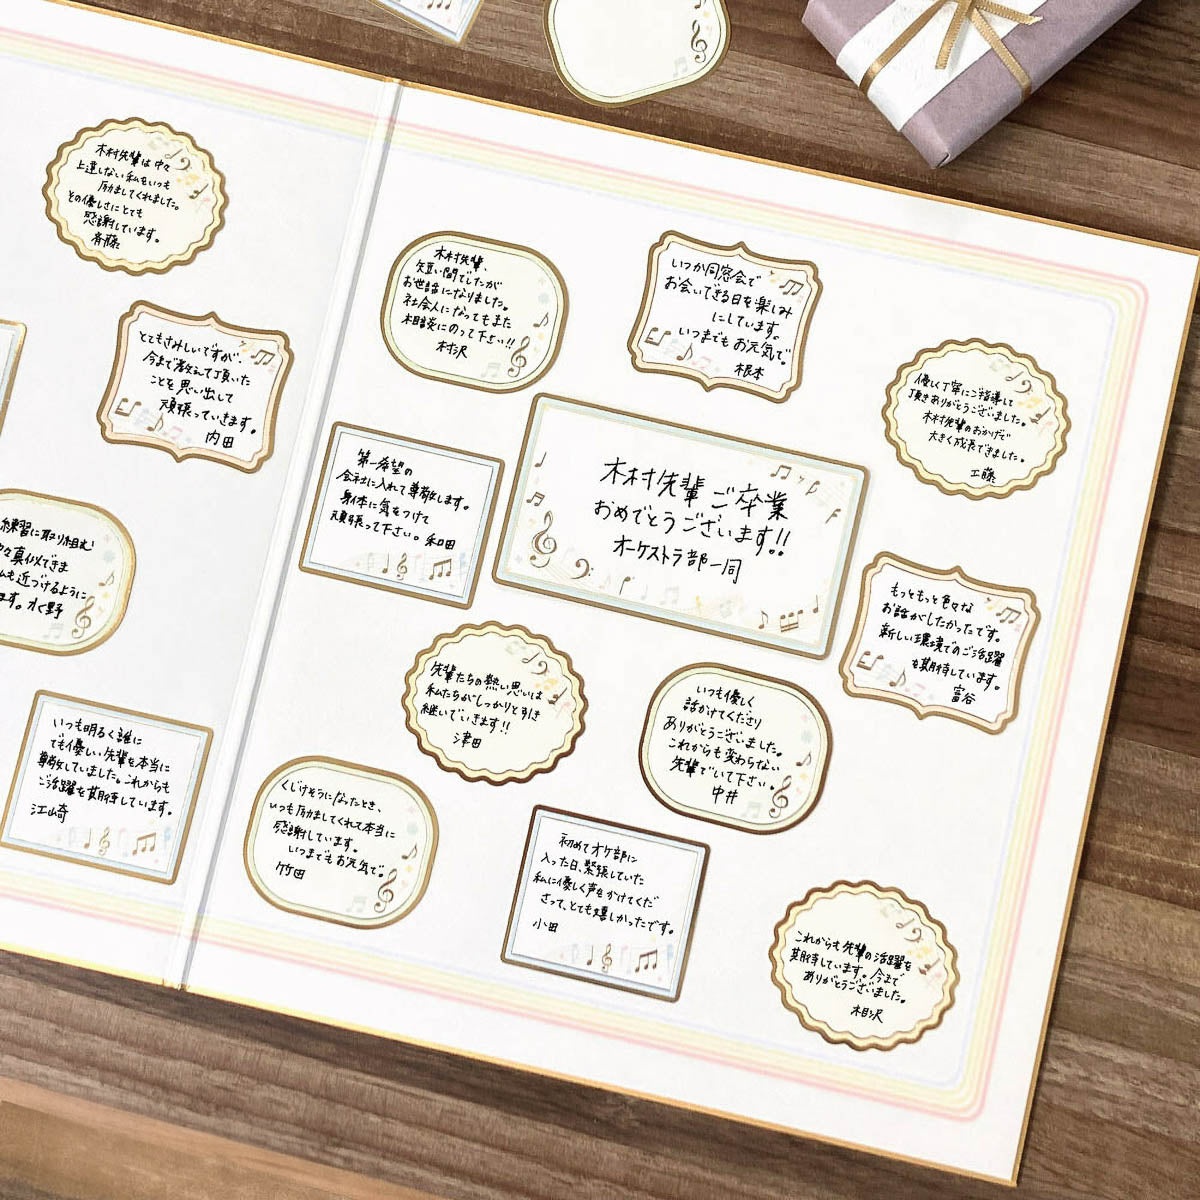 木村先輩は中々
上達しない私をいつも
励ましてくれました。
その優しさにとても
感謝しています。
斉藤
とてもさみしいですが、
今まで教えて頂いた
ことを思い出して
頑張っていきます。
内田
練習に取り組む
真似できま
も近づけるように
ます。水野
いつも明るく誰に
でも優しい先輩を本当に
尊敬していました。これからも
ご活躍を期待しています。
江崎
木村先輩、
短い間でしたが
お世話になりました。
社会人になってもまた
相談にのって下さい!!
村沢
いつか同窓会で
お会いできる日を楽しみ
にしています。
いつまでもお元気で。
根本
優しく丁寧にご指導して
頂きありがとうございました。
木村先輩のおかげで
大きく成長できました。
工藤
第一希望の
会社に入れて尊敬します。
身体に気をつけて
頑張って下さい。和田
木村先輩ご卒業
おめでとうございます!!
オーケストラ部一同
もっともっと色々な
お話がしたかったです。
新しい環境でのご活躍
も期待しています。
富谷
先輩たちの熱い思いは
私たちがしっかりと引き
継いでいきます!!
津田
いつも優しく
話かけてくださり
ありがとうございました。
これからも変わらない
先輩でいて下さい。
中井
くじけそうになったとき、
いつも励ましてくれて本当に
感謝しています。
いつまでもお元気で。
竹田
初めてオケ部に
入った日、緊張していた
私に優しく声をかけてくだ
さって、とても嬉しかったです。
小田
これからも先輩の活躍を
期待しています。今まで
ありがとうございました。
相沢